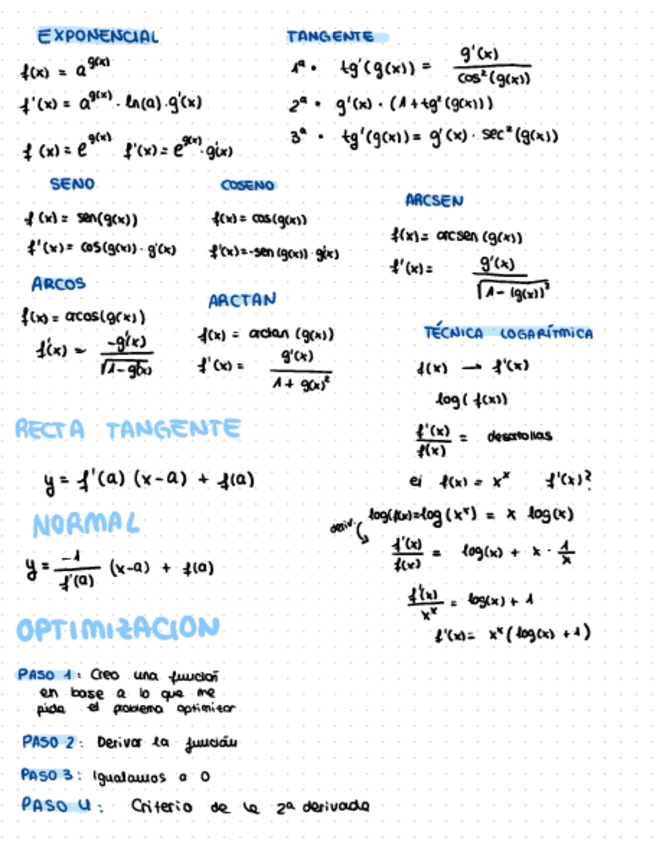 EXPONENCIAL
f(x) = a^g(x)
f'(x) = a^g(x) · ln(a) · g'(x)
f(x) = e^g(x) f'(x) = e^g(x) · g'(x)
TANGENTE
1ª · tg'(g(x)) = g'(x) / cos²(g(x))
2ª · g'(x) · (1 + tg²(g(x)))
3ª · tg'(g(x)) = g'(x) · sec²(g(x))
SENO
f(x) = sen(g(x))
f'(x) = cos(g(x)) · g'(x)
COSENO
f(x) = cos(g(x))
f'(x) = -sen(g(x)) · g'(x)
ARCSEN
f(x) = arcsen(g(x))
f'(x) = g'(x) / √(1 - (g(x))²)
ARCOS
f(x) = arcos(g(x))
f'(x) = -g'(x) / √(1 - g(x))
ARCTAN
f(x) = arctan (g(x))
f'(x) = g'(x) / 1 + g(x)²
TÉCNICA LOGARÍTMICA
f(x) → f'(x)
log(f(x))
f'(x) / f(x) = desarrollas
ej f(x) = x^x f'(x)?
log(f(x)) = log(x^x) = x log(x)
deriv.
f'(x) / f(x) = log(x) + x · 1/x
f'(x) / x^x = log(x) + 1
f'(x) = x^x (log(x) + 1)
RECTA TANGENTE
y = f'(a) (x-a) + f(a)
NORMAL
y = -1 / f'(a) (x-a) + f(a)
OPTIMIZACION
PASO 1: Creo una función
en base a lo que me
pide el problema optimizar
PASO 2: Derivar la función
PASO 3: Igualamos a 0
PASO 4: Criterio de la 2ª derivada